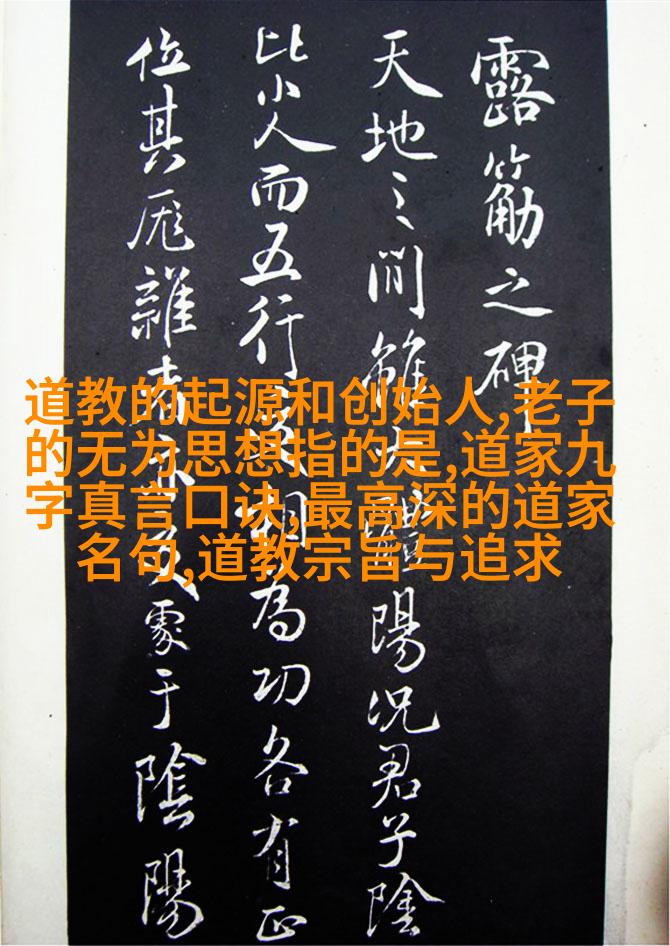 露筋之碑
天地之間雖大體陽況君子陰
比小人而五行更相為功各有正
位其厖雜者亦交處于陰陽
道教的起源和创始人,老子
的无为思想指的是,道家九
字真言口诀,最高深的道家
名句,道教宗旨与追求